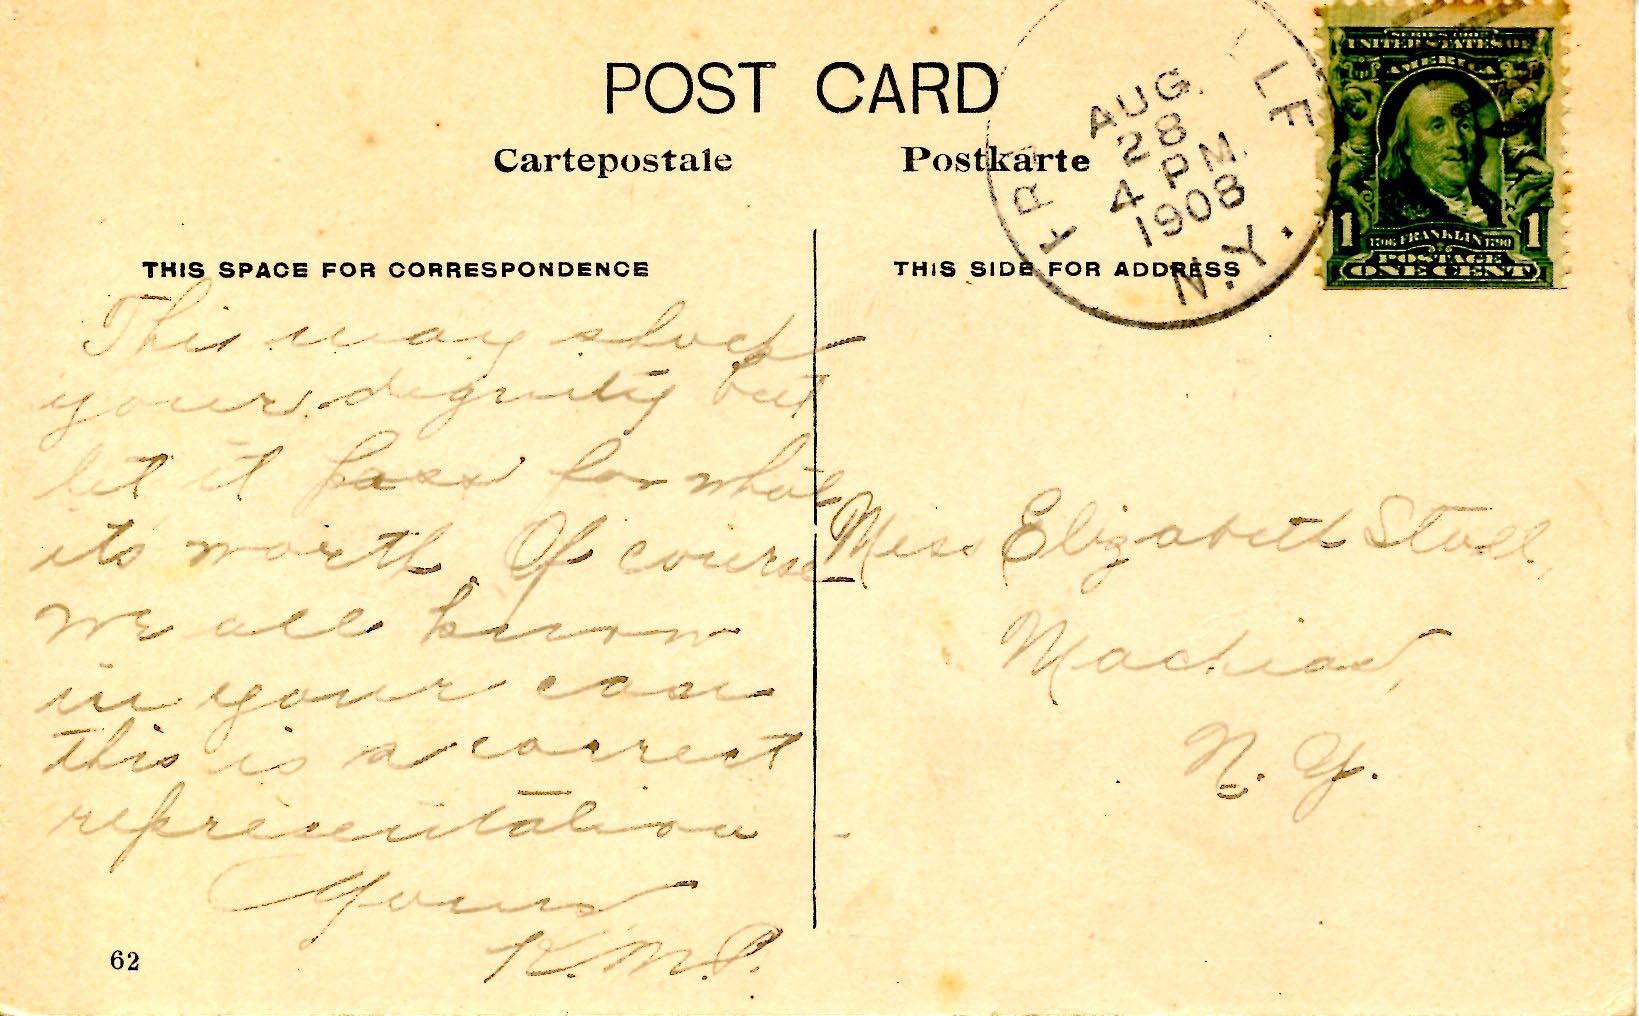 POST CARD
Cartepostale Postkarte
AUG.
28
4 PM.
1908
N.Y.
SERIES 1902
UNITED STATES OF
AMERICA
1 1
1706 FRANKLIN 1790
POSTAGE
ONE CENT
THIS SPACE FOR CORRESPONDENCE
This may shock
your dignity but
let it pass for what
its worth. Of course
we all know
in your case
this is a correct
representation
Yours
K.M.P.
62
THIS SIDE FOR ADDRESS
Miss Elizabeth Stoll,
Machias,
N.Y.